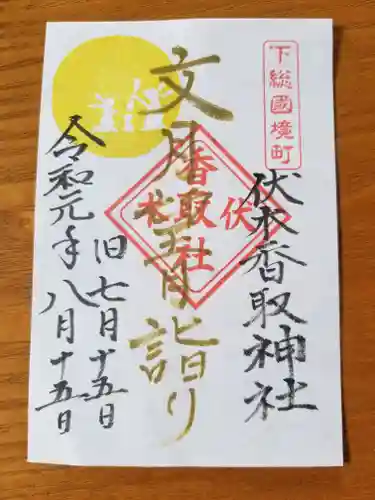 下総國境町
伏木香取神社
文月十五日詣り
香取
伏木
社
旧七月十五日
令和元年八月十五日